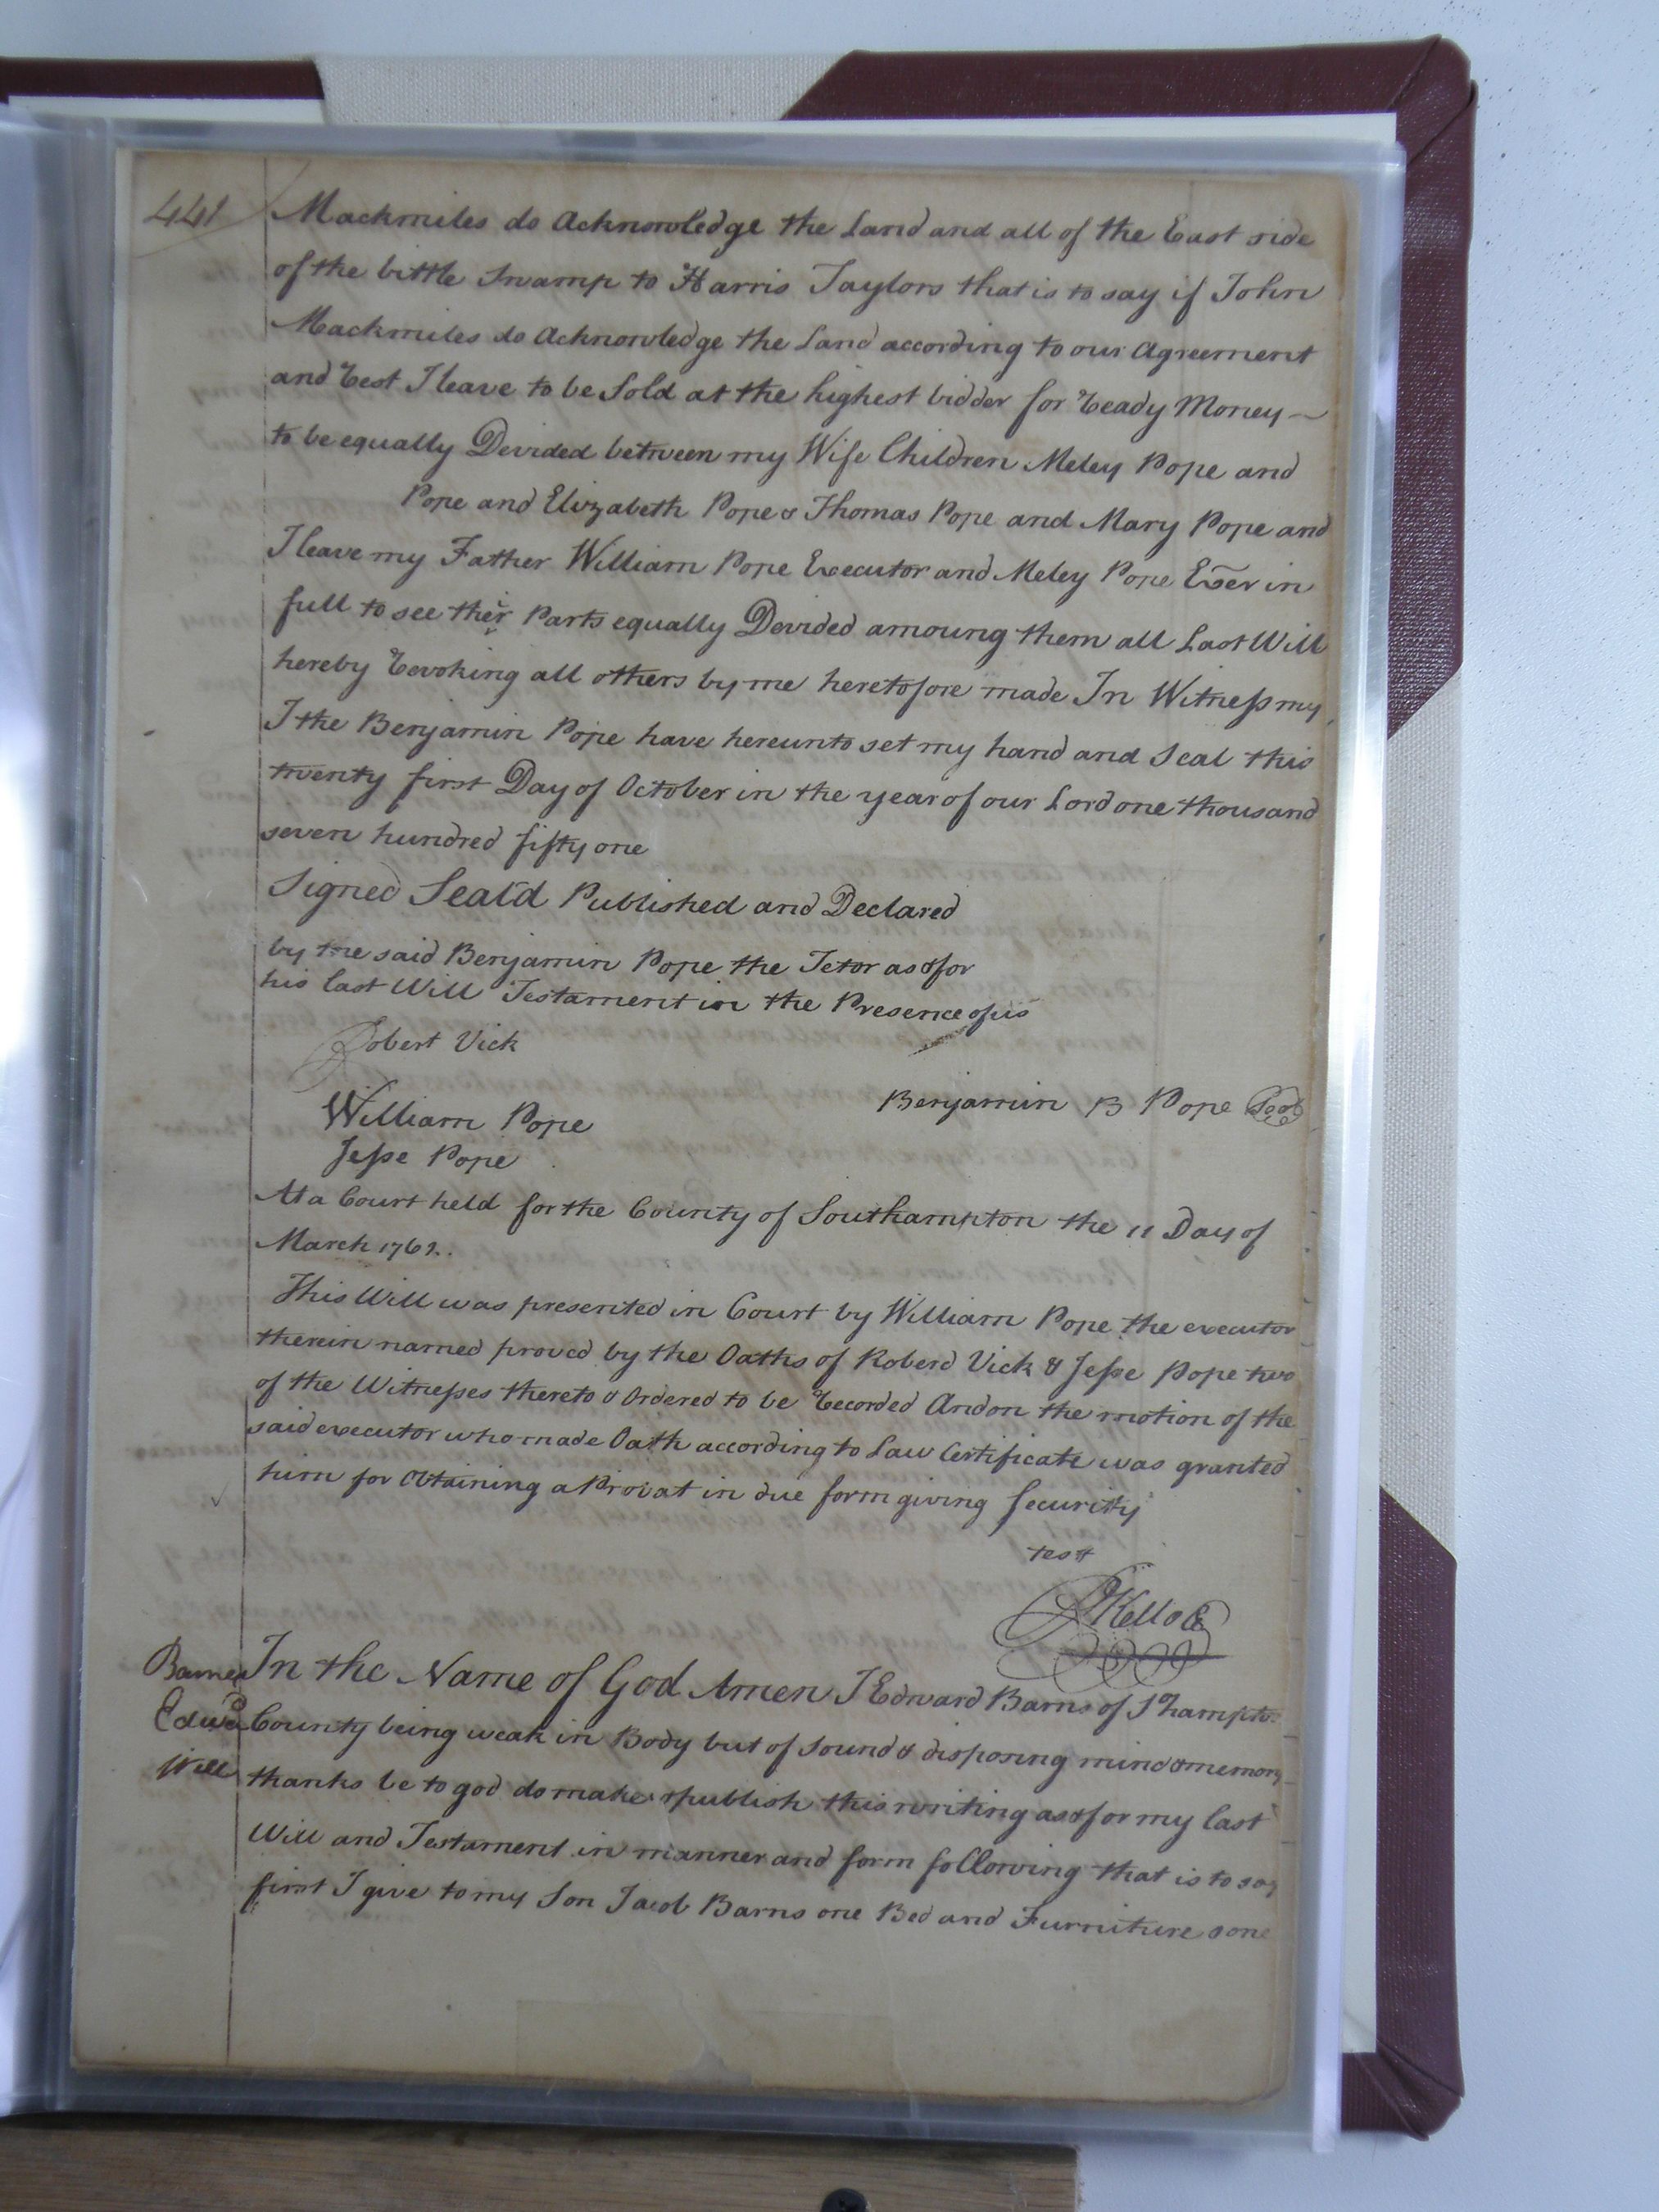 441
Mackmiles do Acknowledge the Land and all of the East side
of the little Swamp to Harris Taylors that is to say if John
Mackmiles do Acknowledge the Land according to our Agreement
and Rest I leave to be Sold at the highest bidder for Ready Money —
to be equally Devided between my Wife Children Meley Pope and
Pope and Elizabeth Pope & Thomas Pope and Mary Pope and
I leave my Father William Pope Executor and Meley Pope Exer in
full to see their Parts equally Devided amoung them all Last Will
hereby Revoking all others by me heretofore made In Witness my
I the Benjamin Pope have hereunto set my hand and Seal this
twenty first Day of October in the year of our Lord one thousand
seven hundred fifty one
Signed Seal'd Published and Declared
by the said Benjamin Pope the Tetor as & for
his last Will Testament in the Presence of us
Robert Vick
Benjamin B Pope Seal
William Pope
Jesse Pope
At a Court held for the County of Southampton the 11 Day of
March 1762.
This Will was presented in Court by William Pope the executor
therein named proved by the Oaths of Roberd Vick & Jesse Pope two
of the Witnesses thereto & Ordered to be Recorded And on the motion of the
said executor who made Oath according to Law Certificate was granted
him for Obtaining a Probat in due form giving Security
test
RKello C
Barnes Edwd Will
In the Name of God Amen I Edward Barns of Shampton
County being weak in Body but of Sound & disposing mind & memory
thanks be to god do make & publish this writing as & for my last
Will and Testament in manner and form following that is to say
first I give to my Son Jacob Barns one Bed and Furniture & one